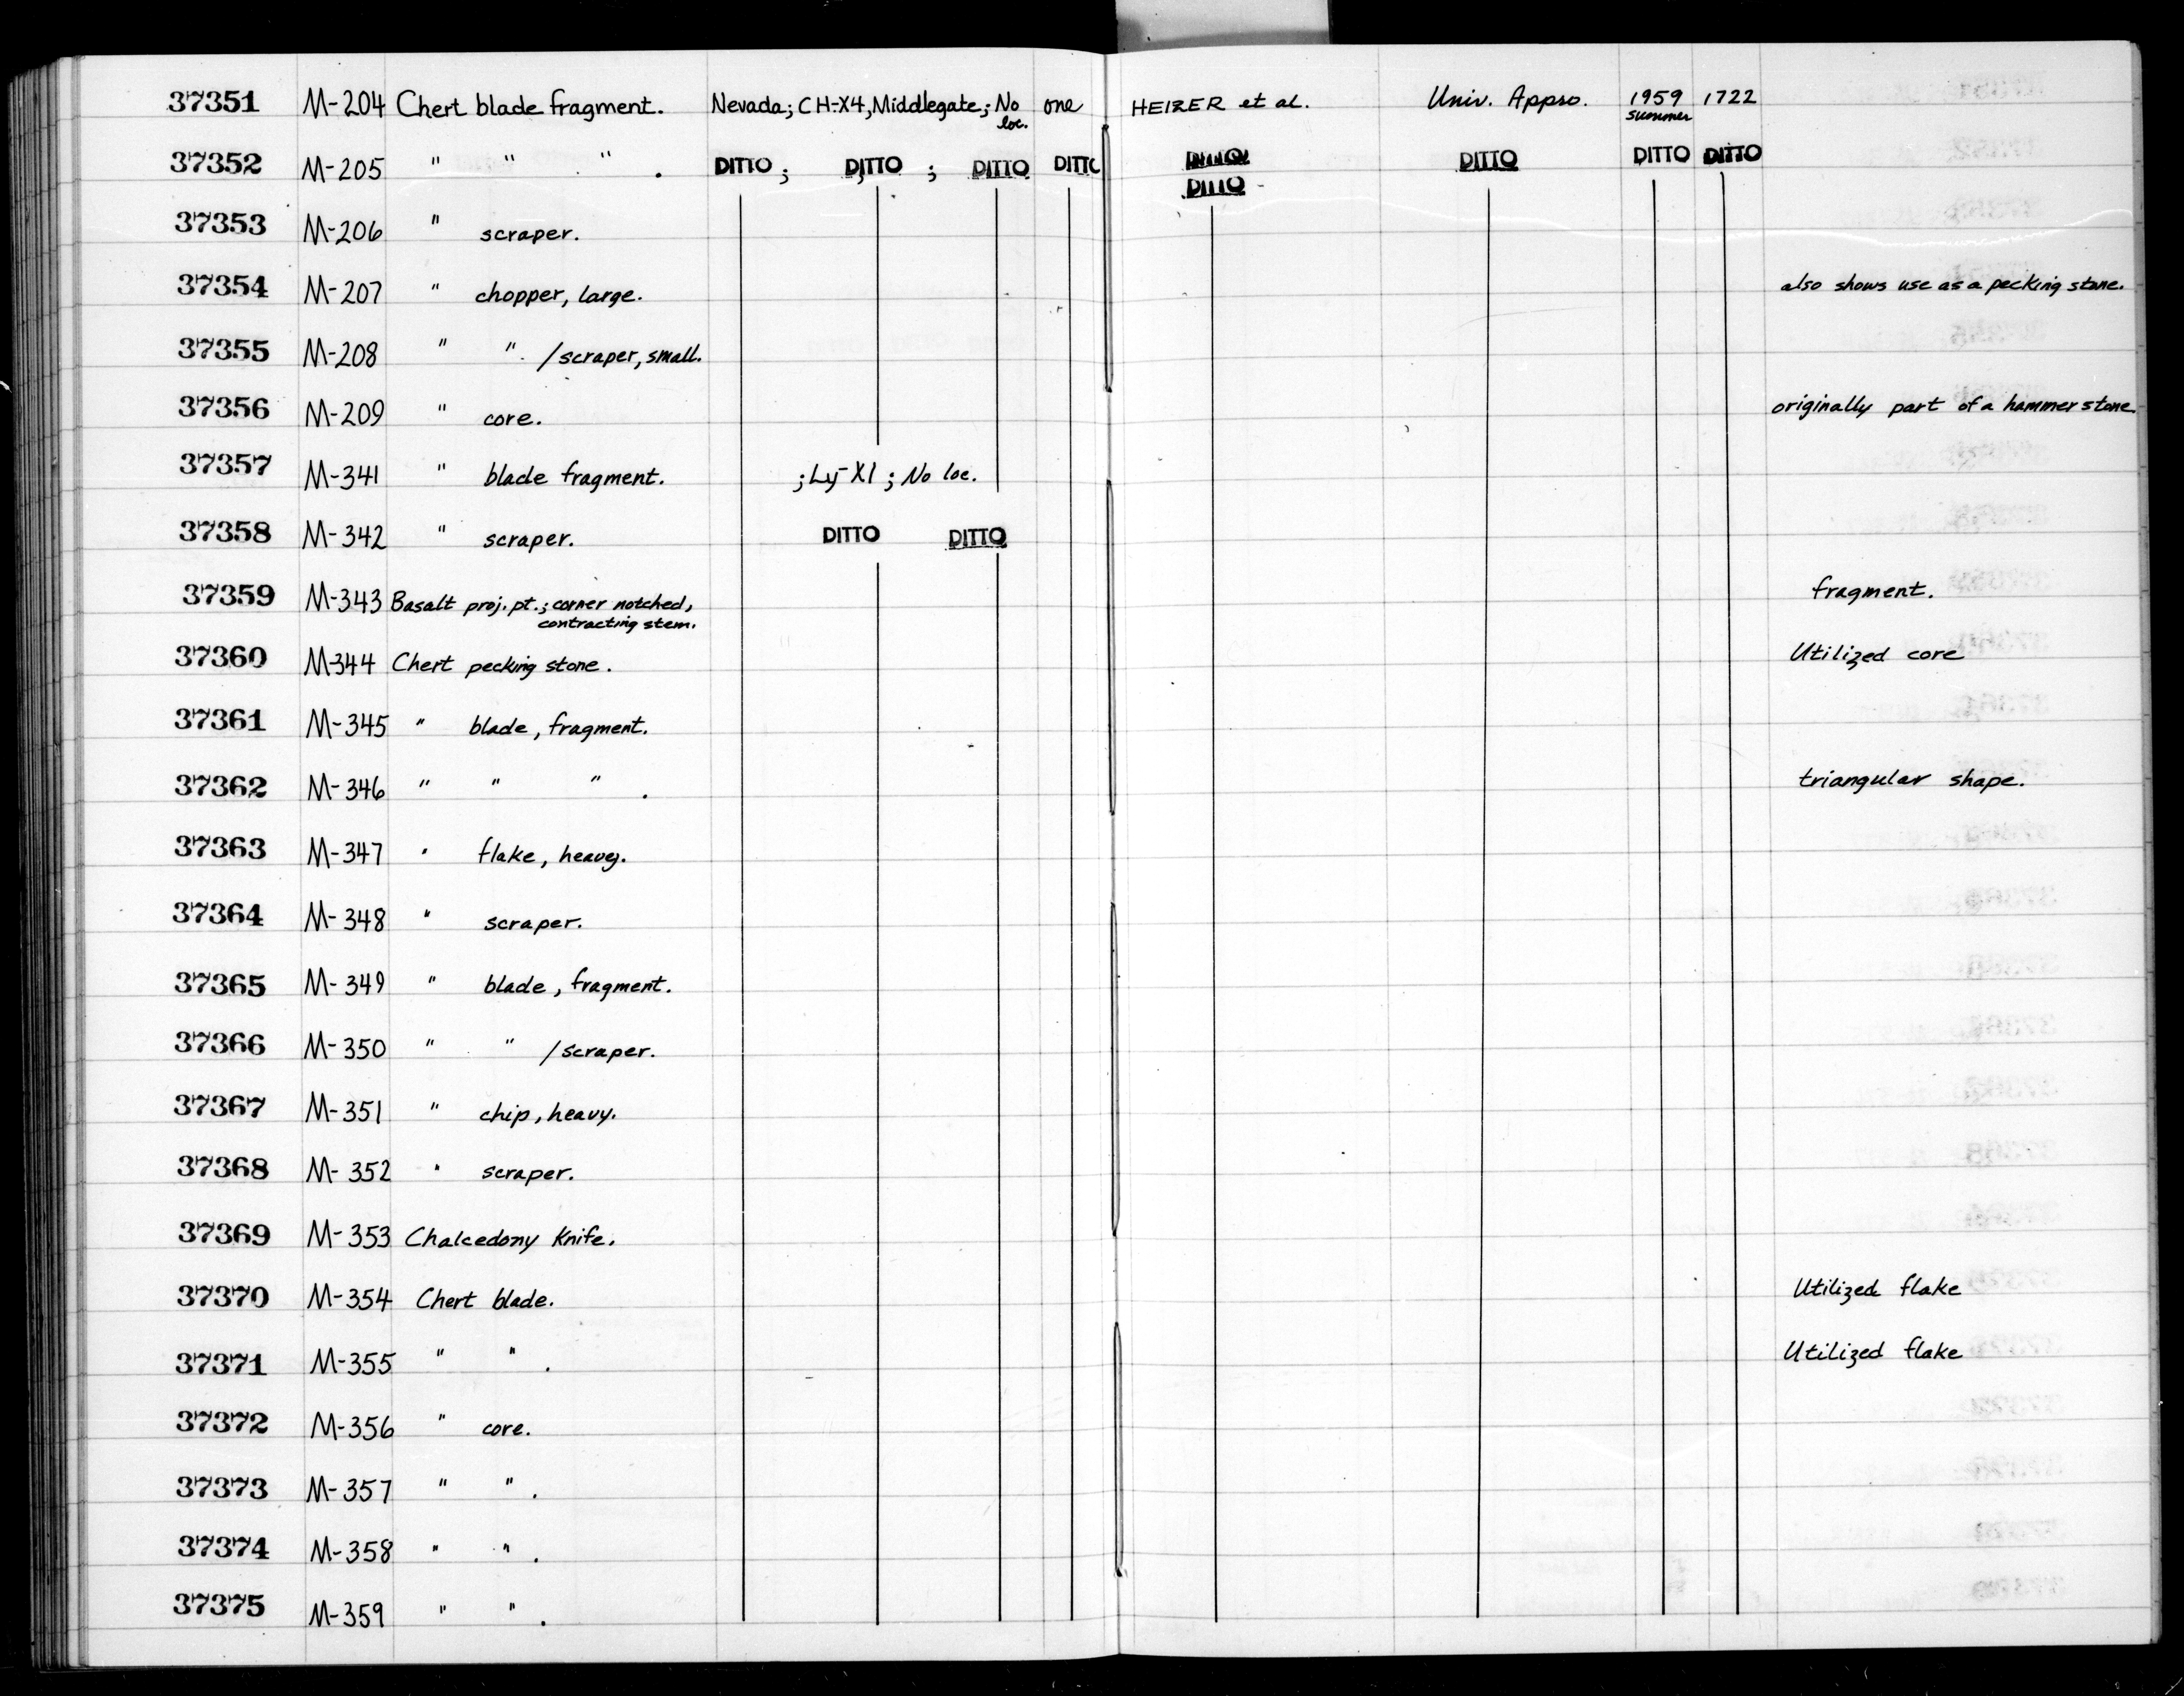 37351 M-204 Chert blade fragment. Nevada; CH-X4, Middlegate; No loc. one HEIZER et al. Univ. Appro. 1959 summer 1722
37352 M-205 " " " . DITTO ; DITTO ; DITTO DITTO DITTO DITTO DITTO DITTO
37353 M-206 " scraper.
37354 M-207 " chopper, large. also shows use as a pecking stone.
37355 M-208 " " /scraper, small.
37356 M-209 " core. originally part of a hammerstone
37357 M-341 " blade fragment. ; Ly-X1 ; No loc.
37358 M-342 " scraper. DITTO DITTO
37359 M-343 Basalt proj. pt.; corner notched, contracting stem. fragment.
37360 M-344 Chert pecking stone. Utilized core
37361 M-345 " blade, fragment.
37362 M-346 " " " . triangular shape.
37363 M-347 " flake, heavy.
37364 M-348 " scraper.
37365 M-349 " blade, fragment.
37366 M-350 " " /scraper.
37367 M-351 " chip, heavy.
37368 M-352 " scraper.
37369 M-353 Chalcedony Knife.
37370 M-354 Chert blade. Utilized flake
37371 M-355 " " . Utilized flake
37372 M-356 " core.
37373 M-357 " " .
37374 M-358 " " .
37375 M-359 " " .